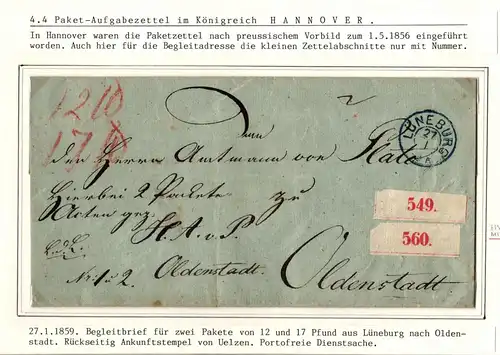 4.4 Paket-Aufgabezettel im Königreich HANNOVER.
In Hannover waren die Paketzettel nach preussischem Vorbild zum 1.5.1856 eingeführt
worden. Auch hier für die Begleitadresse die kleinen Zettelabschnitte nur mit Nummer.
12
17
LÜNEBURG
27
1
den Herrn Amtmann von
Hierbei 2 Packete zu
Acten gez.
H. A. v. P
Oldenstadt.
No: 1 u 2.
Oldenstadt
549.
560.
27.1.1859. Begleitbrief für zwei Pakete von 12 und 17 Pfund aus Lüneburg nach Olden-
stadt. Rückseitig Ankunftstempel von Uelzen. Portofreie Dienstsache.